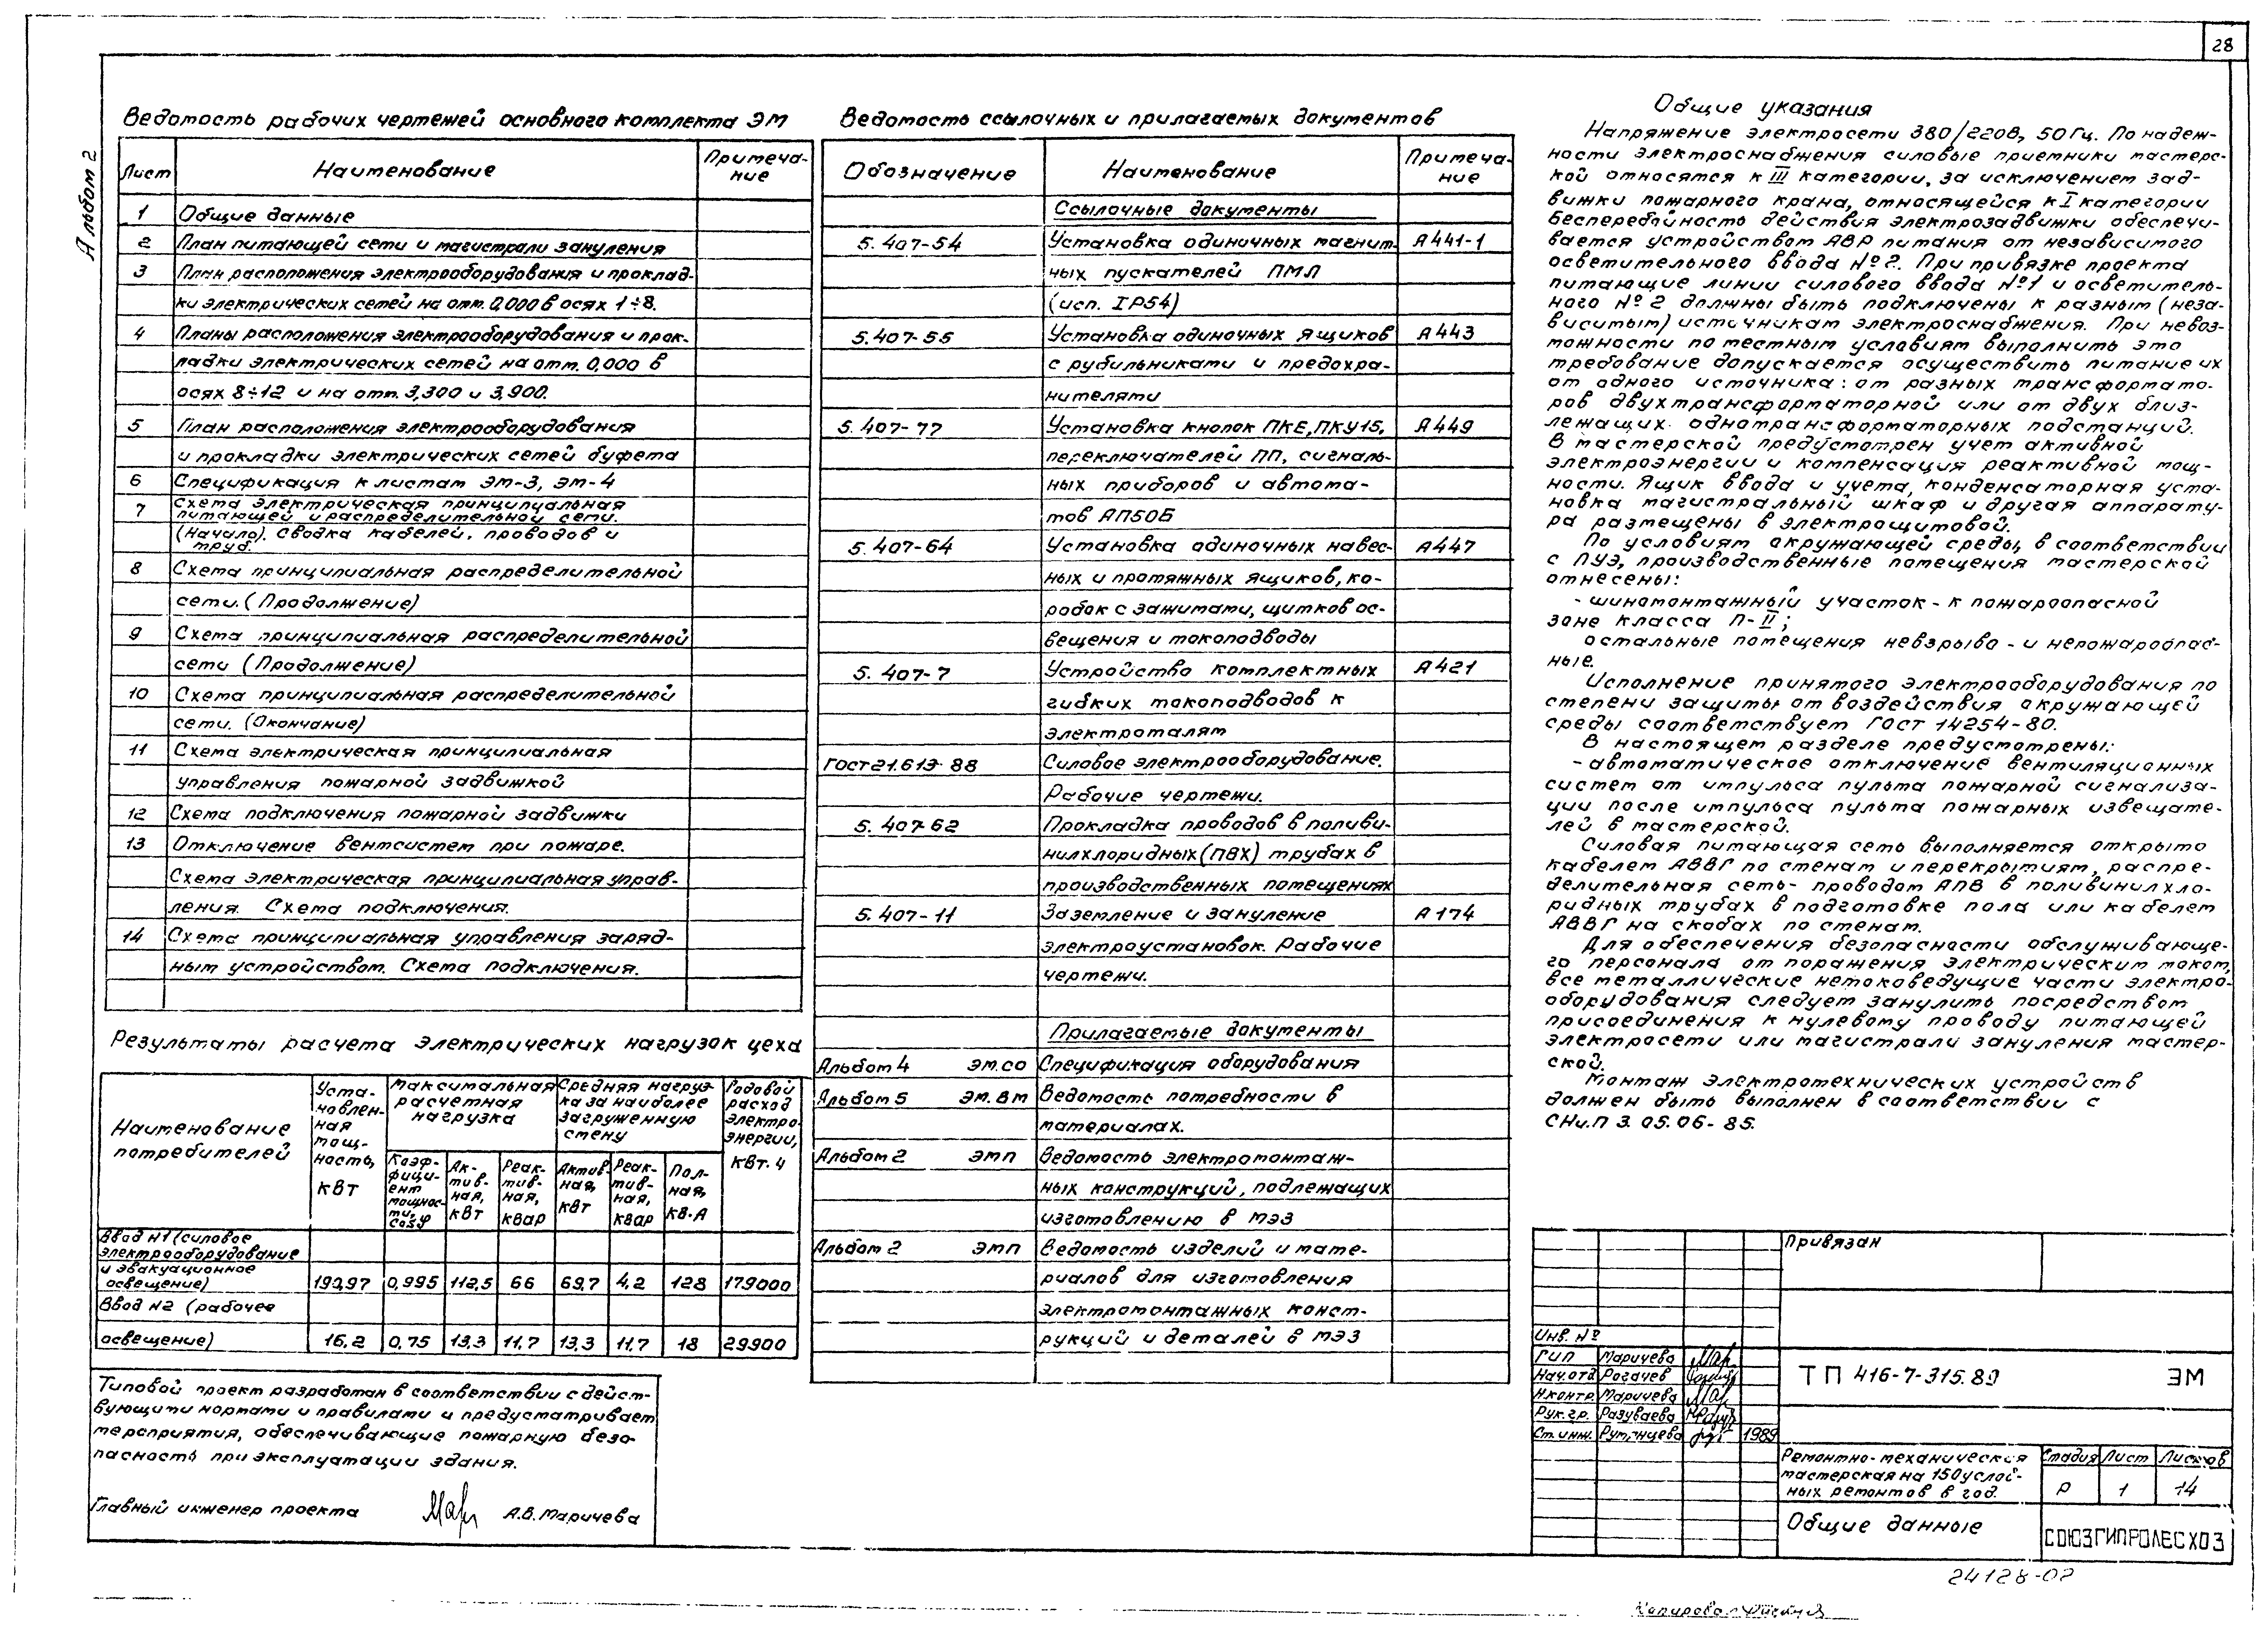 28
Альбом 2
Ведомость рабочих чертежей основного комплекта ЭМ
Лист Наименование Примеча-
ние
1 Общие данные
2 План питающей сети и магистрали зануления
3 План расположения электрооборудования и проклад-
ки электрических сетей на отм. 0,000 в осях 1÷8.
4 Планы расположения электрооборудования и прок-
ладки электрических сетей на отм. 0,000 в
осях 8÷12 и на отм. 3,300 и 3,900.
5 План расположения электрооборудования
и прокладки электрических сетей буфета
6 Спецификация к листам ЭМ-3, ЭМ-4
7 Схема электрическая принципиальная
питающей и распределительной сети.
(Начало). Сводка кабелей, проводов и
труб.
8 Схема принципиальная распределительной
сети. (Продолжение)
9 Схема принципиальная распределительной
сети (Продолжение)
10 Схема принципиальная распределительной
сети. (Окончание)
11 Схема электрическая принципиальная
управления пожарной задвижкой
12 Схема подключения пожарной задвижки
13 Отключение вентсистем при пожаре.
Схема электрическая принципиальная управ-
ления. Схема подключения.
14 Схема принципиальная управления заряд-
ным устройством. Схема подключения.
Результаты расчета электрических нагрузок цеха
Наименование
потребителей
Уста-
новлен-
ная
мощ-
ность,
кВт
Максимальная
расчетная
нагрузка
Коэф-
фици-
ент
мощнос-
ти,
cosφ
Ак-
тив-
ная,
кВт
Реак-
тив-
ная,
квар
Средняя нагруз-
ка за наиболее
загруженную
смену
Актив-
ная,
кВт
Реак-
тив-
ная,
квар
Пол-
ная,
кВ·А
Годовой
расход
электро-
энергии,
кВт.ч
Ввод №1 (силовое
электрооборудование
и эвакуационное
освещение) 190,97 0,995 112,5 66 69,7 4,2 128 179000
Ввод №2 (рабочее
освещение) 16,2 0,75 13,3 11,7 13,3 11,7 18 29900
Типовой проект разработан в соответствии с дейст-
вующими нормами и правилами и предусматривает
мероприятия, обеспечивающие пожарную безо-
пасность при эксплуатации здания.
Главный инженер проекта А.В. Маричева
Ведомость ссылочных и прилагаемых документов
Обозначение Наименование Примеча-
ние
Ссылочные документы
5.407-54 Установка одиночных магнит- А441-1
ных пускателей ПМЛ
(исп. IP54)
5.407-55 Установка одиночных ящиков А443
с рубильниками и предохра-
нителями
5.407-77 Установка кнопок ПКЕ, ПКУ15, А449
переключателей ПП, сигналь-
ных приборов и автома-
тов АП50Б
5.407-64 Установка одиночных навес- А447
ных и протяжных ящиков, ко-
робок с зажимами, щитков ос-
вещения и токоподводы
5.407-7 Устройство комплектных А421
гибких токоподводов к
электроталям
ГОСТ 21.613-88 Силовое электрооборудование.
Рабочие чертежи.
5.407-62 Прокладка проводов в поливи-
нилхлоридных (ПВХ) трубах в
производственных помещениях
5.407-11 Заземление и зануление А174
электроустановок. Рабочие
чертежи.
Прилагаемые документы
Альбом 4 ЭМ.СО Спецификация оборудования
Альбом 5 ЭМ.ВМ Ведомость потребности в
материалах.
Альбом 2 ЭМП Ведомость электромонтаж-
ных конструкций, подлежащих
изготовлению в МЭЗ
Альбом 2 ЭМП Ведомость изделий и мате-
риалов для изготовления
электромонтажных конст-
рукций и деталей в МЭЗ
Общие указания
Напряжение электросети 380/220В, 50 Гц. По надеж-
ности электроснабжения силовые приемники мастерс-
кой относятся к III категории, за исключением зад-
вижки пожарного крана, относящейся к I категории
Бесперебойность действия электрозадвижки обеспечи-
вается устройством АВР питания от независимого
осветительного ввода №2. При привязке проекта
питающие линии силового ввода №1 и осветитель-
ного №2 должны быть подключены к разным (неза-
висимым) источникам электроснабжения. При невоз-
можности по местным условиям выполнить это
требование допускается осуществить питание их
от одного источника: от разных трансформато-
ров двухтрансформаторной или от двух близ-
лежащих однотрансформаторных подстанций.
В мастерской предусмотрен учет активной
электроэнергии и компенсация реактивной мощ-
ности. Ящик ввода и учета, конденсаторная уста-
новка магистральный шкаф и другая аппарату-
ра размещены в электрощитовой.
По условиям окружающей среды, в соответствии
с ПУЭ, производственные помещения мастерской
отнесены:
- шиномонтажный участок - к пожароопасной
зоне класса П-II;
остальные помещения невзрыво- и непожароопас-
ные.
Исполнение принятого электрооборудования по
степени защиты от воздействия окружающей
среды соответствует ГОСТ 14254-80.
В настоящем разделе предусмотрены:
- автоматическое отключение вентиляционных
систем от импульса пульта пожарной сигнализа-
ции после импульса пульта пожарных извещате-
лей в мастерской.
Силовая питающая сеть выполняется открыто
кабелем АВВГ по стенам и перекрытиям, распре-
делительная сеть- проводом АПВ в поливинилхло-
ридных трубах в подготовке пола или кабелем
АВВГ на скобах по стенам.
Для обеспечения безопасности обслуживающе-
го персонала от поражения электрическим током,
все металлические нетоковедущие части электро-
оборудования следует занулить посредством
присоединения к нулевому проводу питающей
электросети или магистрали зануления мастер-
ской.
Монтаж электротехнических устройств
должен быть выполнен в соответствии с
СНиП 3.05.06-85.
Привязан
Инв. №
ГИП Маричева
Нач.отд. Рогачев
Н.контр. Маричева
Рук.гр. Разуваева
Ст.инж. Румянцева 1989
ТП 416-7-315.89 ЭМ
Ремонтно-механическая
мастерская на 150 услов-
ных ремонтов в год.
Стадия Лист Листов
Р 1 14
Общие данные
СОЮЗГИПРОЛЕСХОЗ
24128-02
Копировал